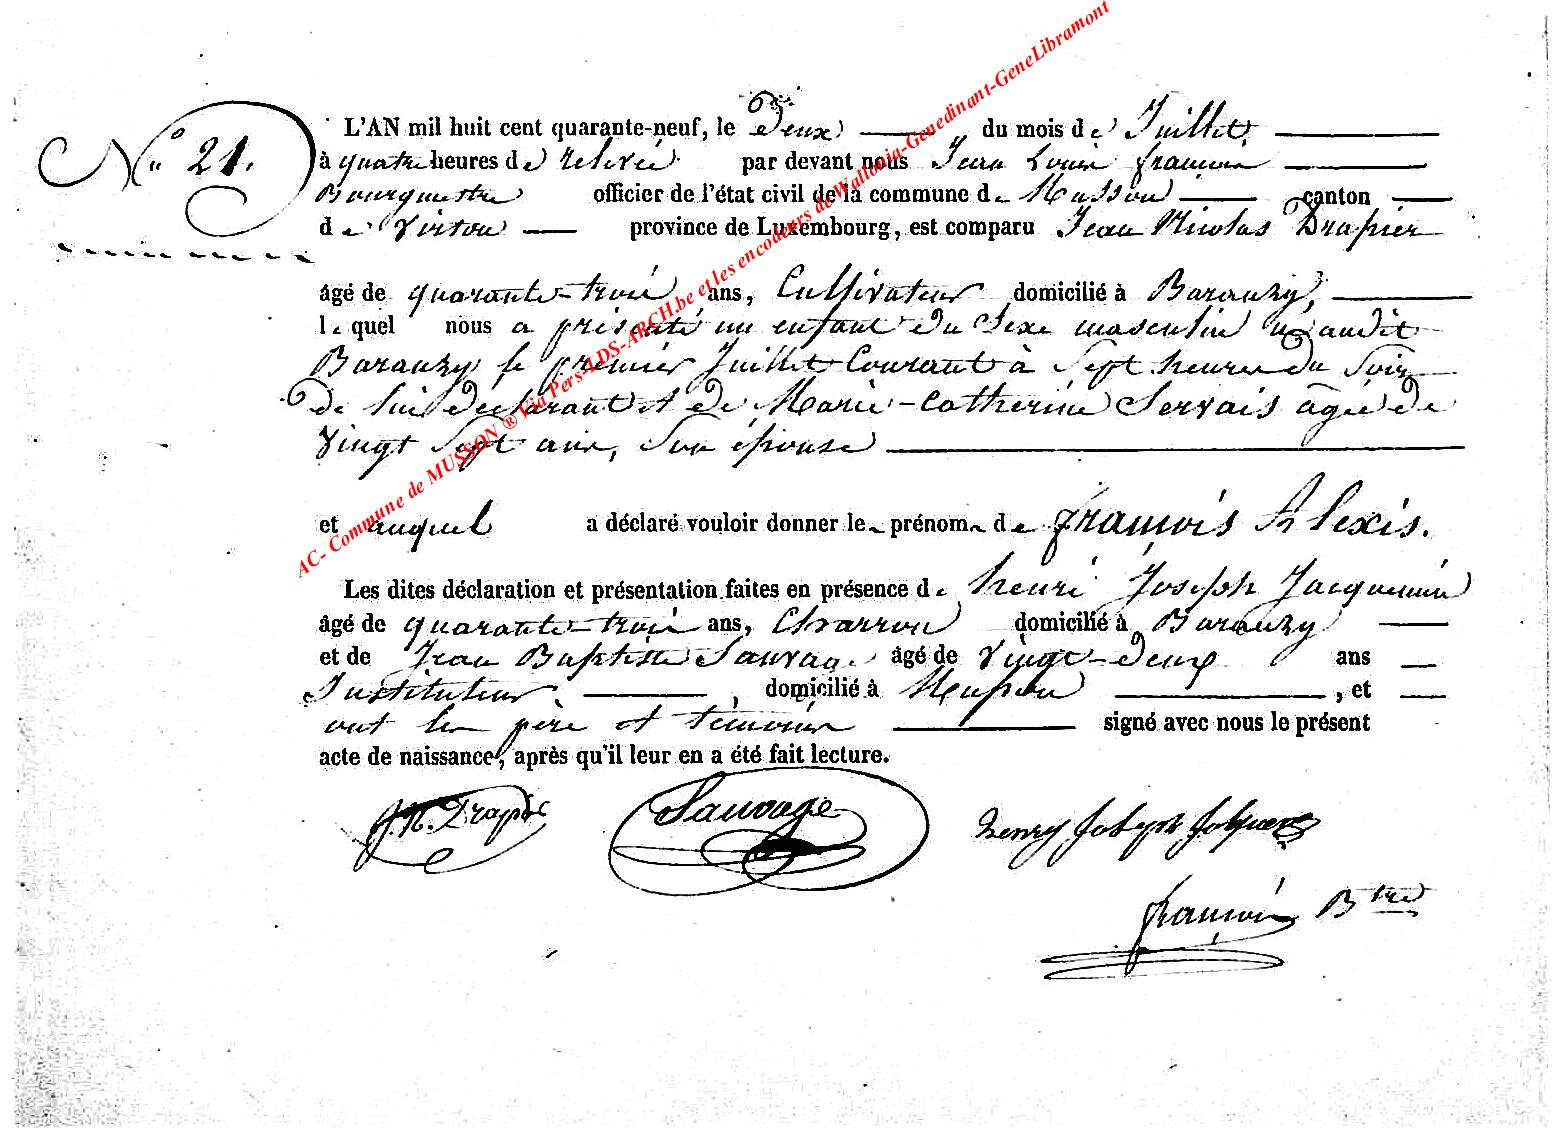 N° 21.
L'AN mil huit cent quarante-neuf, le deux du mois de Juillet
à quatre heures de relevée par devant nous Jean Louis François
Bourgmestre officier de l'état civil de la commune de Musson canton
de Virton province de Luxembourg, est comparu Jean Nicolas Drapier
âgé de quarante-trois ans, Cultivateur domicilié à Baranzy,
lequel nous a présenté un enfant du sexe masculin né audit
Baranzy le premier Juillet Courant à Sept heures du Soir
de lui déclarant et de Marie-Catherine Servais âgée de
vingt sept ans, son épouse
et auquel a déclaré vouloir donner le prénom de François Alexis.
Les dites déclaration et présentation faites en présence de henri Joseph Jacquemin
âgé de quarante-trois ans, Charron domicilié à Baranzy
et de Jean Baptiste Sauvage âgé de vingt-deux ans
Instituteur, domicilié à Musson, et
ont les père et témoins signé avec nous le présent
acte de naissance, après qu'il leur en a été fait lecture.
J. N. Drapier Sauvage henry Joseph
François Btre
AC- Commune de MUSSON ® Via Pers-LDS-ARCH.be et les encodeurs de Wallonia-Genedinant-GeneLibramont